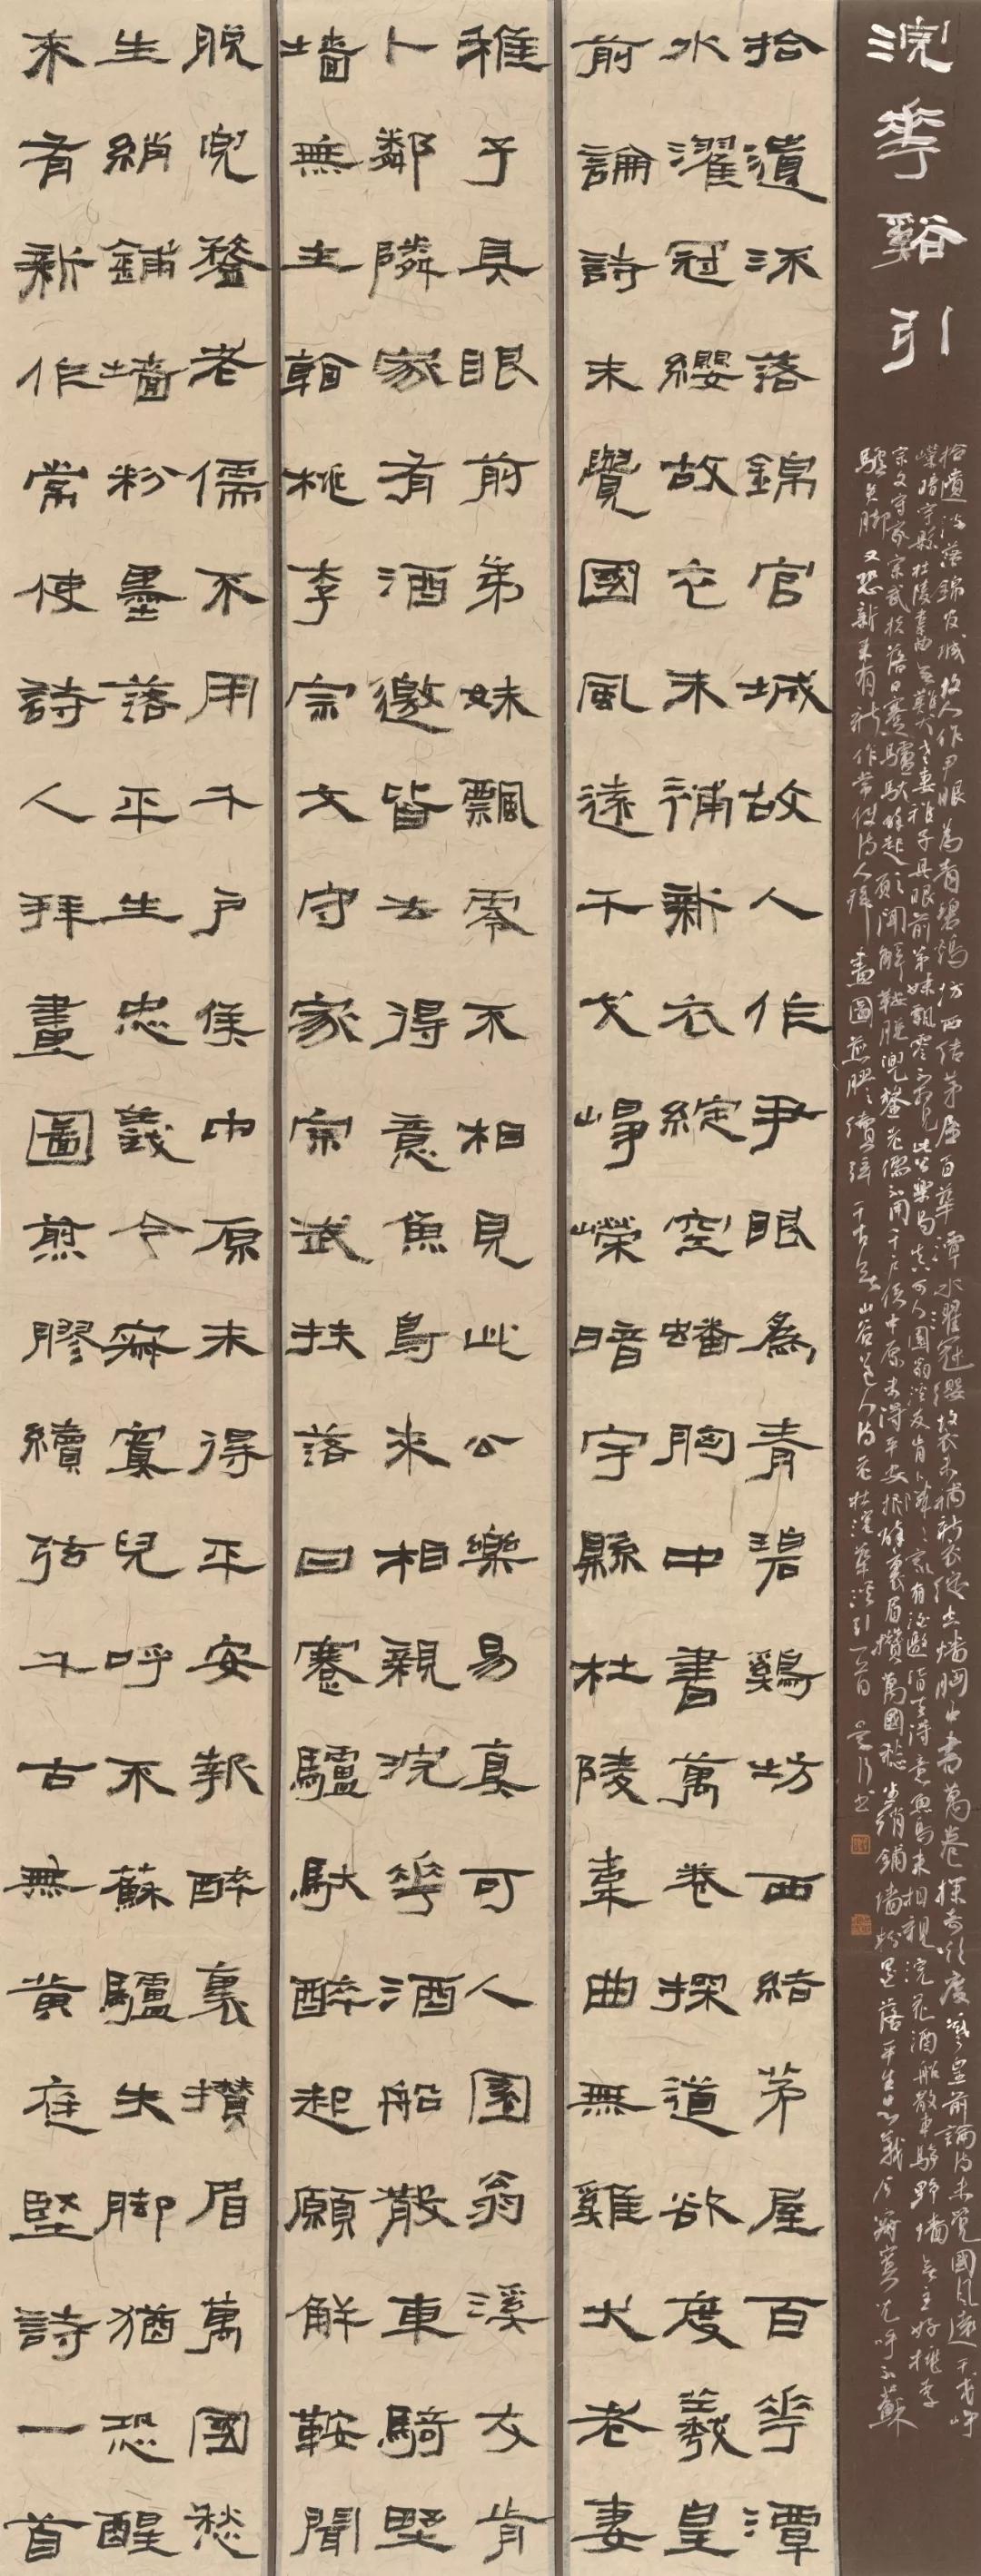 浣華谿引
拾遺流落錦官城故人作尹眼為青碧鷄坊西結茅屋百華潭水濯冠纓故衣未補新衣綻空蟠胸中書萬卷探道欲度羲皇前論詩未覺國風遠干戈崢
嶸暗宇縣杜陵韋曲無雞犬老妻稚子具眼前弟妹飄零不相見此公樂易真可人園翁溪友肯卜鄰鄰家有酒邀皆去得意魚鳥來相親浣花酒船散車騎野墻無主好桃李
宗文守家宗武扶落日蹇驢馱醉起願聞解鞍脫兜鍪老儒不用千戶侯中原未得平安報醉裏眉攢萬國愁生綃鋪墻粉墨落平生忠義今寂寞兒呼不蘇
驢失脚又恐新來有新作常使詩人拜畫圖煎膠續弦千古無山谷道人詩老杜浣華溪引一首
拾遺流落錦官城故人作尹眼為青碧鷄坊西結茅屋百華潭
水濯冠纓故衣未補新衣綻空蟠胸中書萬卷探道欲度羲皇
前論詩未覺國風遠干戈崢嶸暗宇縣杜陵韋曲無雞犬老妻
稚子具眼前弟妹飄零不相見此公樂易真可人園翁溪友肯
卜鄰鄰家有酒邀皆去得意魚鳥來相親浣華酒船散車騎野
墻無主看桃李宗文守家宗武扶落日蹇驢馱醉起願聞解鞍
脫兜鍪老儒不用千戶侯中原未得平安報醉裏攢眉萬國愁
生綃鋪墻粉墨落平生忠義今寂寞兒呼不蘇驢失脚猶恐醒
來有新作常使詩人拜畫圖煎膠續弦千古無黃庭堅詩一首